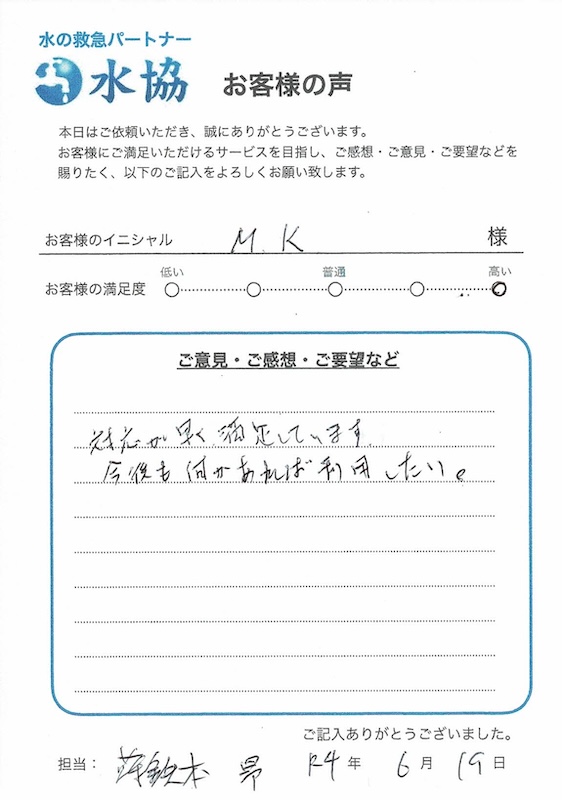 水の救急パートナー
水協 お客様の声
本日はご依頼いただき、誠にありがとうございます。
お客様にご満足いただけるサービスを目指し、ご感想・ご意見・ご要望などを
賜りたく、以下のご記入をよろしくお願い致します。
お客様のイニシャル M.K 様
低い 普通 高い
お客様の満足度
ご意見・ご感想・ご要望など
対応が早く満足しています。
今後も何かあれば利用したい。
ご記入ありがとうございました。
担当： 本 昴 R4年 6月 19日